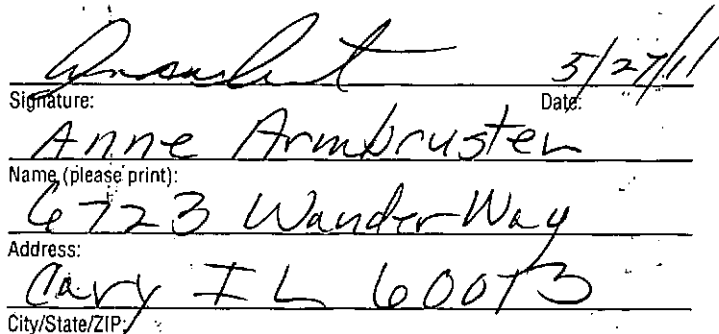 5/27/11
Signature: Date:
Anne Armbruster
Name (please print):
6723 Wander Way
Address:
Cary IL 60013
City/State/ZIP: